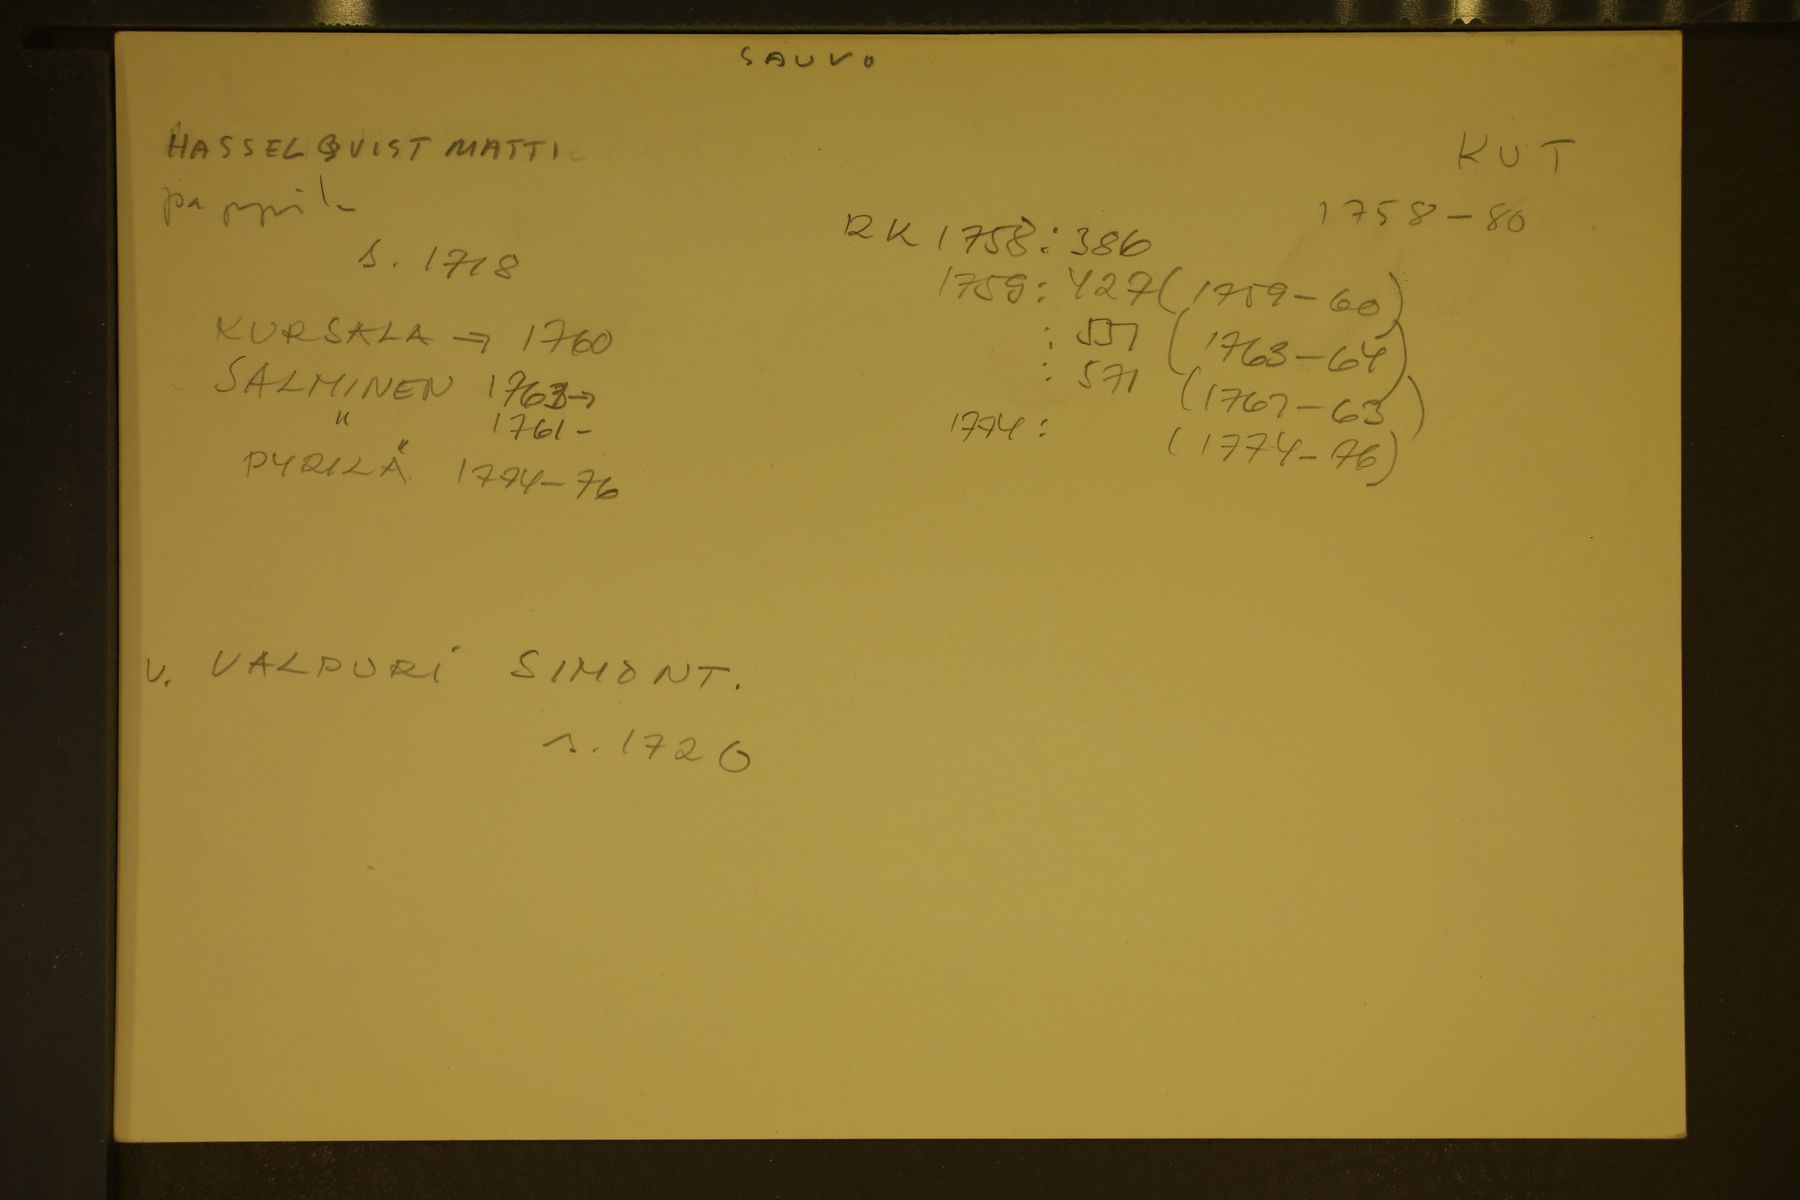 SAUVO
HASSELQVIST MATTI
KUT
1758-80
s. 1718
RK 1758: 386
1759: 427 (1759-60)
KURSALA → 1760
: 551 (1763-64)
SALMINEN 1763→
: 571 (1761-63)
" 1761-
1774: (1774-76)
PYRILÄ 1774-76
v. VALPURI SIMONT.
s. 1720